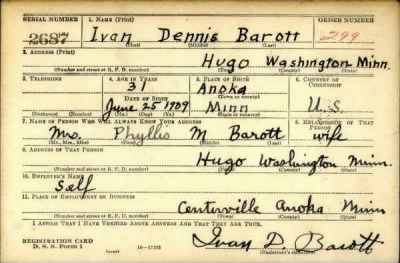 SERIAL NUMBER 1. NAME (Print) ORDER NUMBER
2687 Ivan Dennis Barott 299
(First) (Middle) (Last)
2. ADDRESS (Print)
Hugo Washington Minn.
(Number and street or R. F. D. number) (Town) (County) (State)
3. TELEPHONE 4. AGE IN YEARS 5. PLACE OF BIRTH 6. COUNTRY OF CITIZENSHIP
31 Anoka
DATE OF BIRTH (Town or county)
June 25 1909 Minn U.S
(Exchange) (Number) (Mo.) (Day) (Yr.) (State or country)
7. NAME OF PERSON WHO WILL ALWAYS KNOW YOUR ADDRESS 8. RELATIONSHIP OF THAT PERSON
Mrs. Phyllis M Barott wife
(Mr., Mrs., Miss) (First) (Middle) (Last)
9. ADDRESS OF THAT PERSON
Hugo Washington Minn.
(Number and street or R. F. D. number) (Town) (County) (State)
10. EMPLOYER'S NAME
Self
11. PLACE OF EMPLOYMENT OR BUSINESS
Centerville Anoka Minn
(Number and street or R. F. D. number) (Town) (County) (State)
I AFFIRM THAT I HAVE VERIFIED ABOVE ANSWERS AND THAT THEY ARE TRUE.
REGISTRATION CARD
D. S. S. Form 1 Ivan D. Barott
(Registrant's signature)